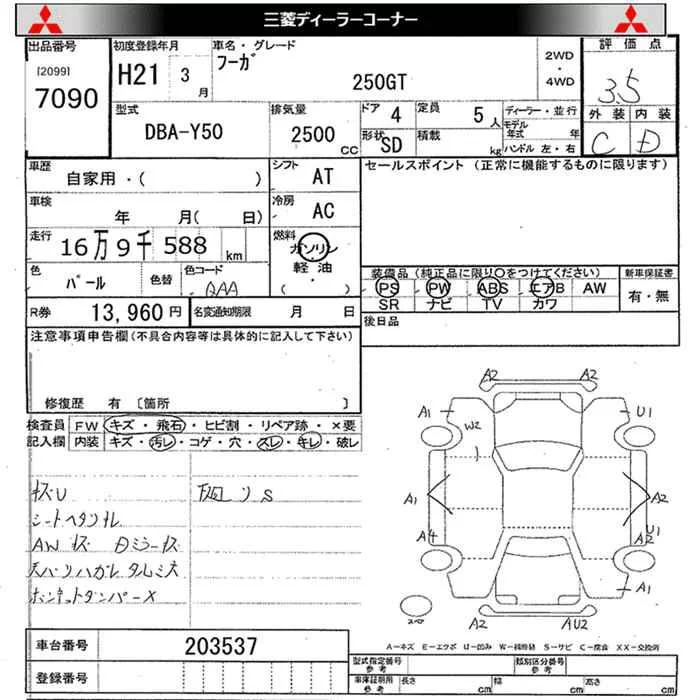 三菱ディーラーコーナー
出品番号 初度登録年月 車名・グレード 2WD・4WD 評価点
[2099] 7090 H21 3月 フーガ 250GT 3.5
型式 排気量 ドア 4 定員 5人 ディーラー・並行 外装 内装
DBA-Y50 2500cc 形状 SD 積載 kg モデル年式 年 C D
ハンドル 左・右
車歴 シフト セールスポイント (正常に機能するものに限ります)
自家用・( ) AT
車検 冷房
年 月( 日) AC
走行 燃料
16万9千588km ガソリン
軽油
( )
色 パール 色替 色コード QAA
装備品(純正品に限り○をつけてください) 新車保証書
PS PW ABS エアB AW 有・無
SR ナビ TV カワ
R券 13,960円 名変通知期限 月 日 後日品
注意事項申告欄(不具合内容等は具体的に記入して下さい)
修復歴 有 〔箇所 〕
検査員 FW キズ・飛石・ヒビ割・リペア跡・×要
記入欄 内装 キズ・汚レ・コゲ・穴・スレ・キレ・破レ
シートヘタリ
AW
天バリハガレタルミ大
ボンネットダンパーX
A2 A2
A1 U1
W2
A1 A2
A4 U1
A2
A1
スペア
A2 AU2
A=キズ E=エクボ U=凹み W=補修跡 S=サビ C=腐食 XX=交換済
車台番号 203537
登録番号
型式指定番号 参考 類別区分番号 参考
車庫証明用 参考 長さ cm 幅 cm 高さ cm